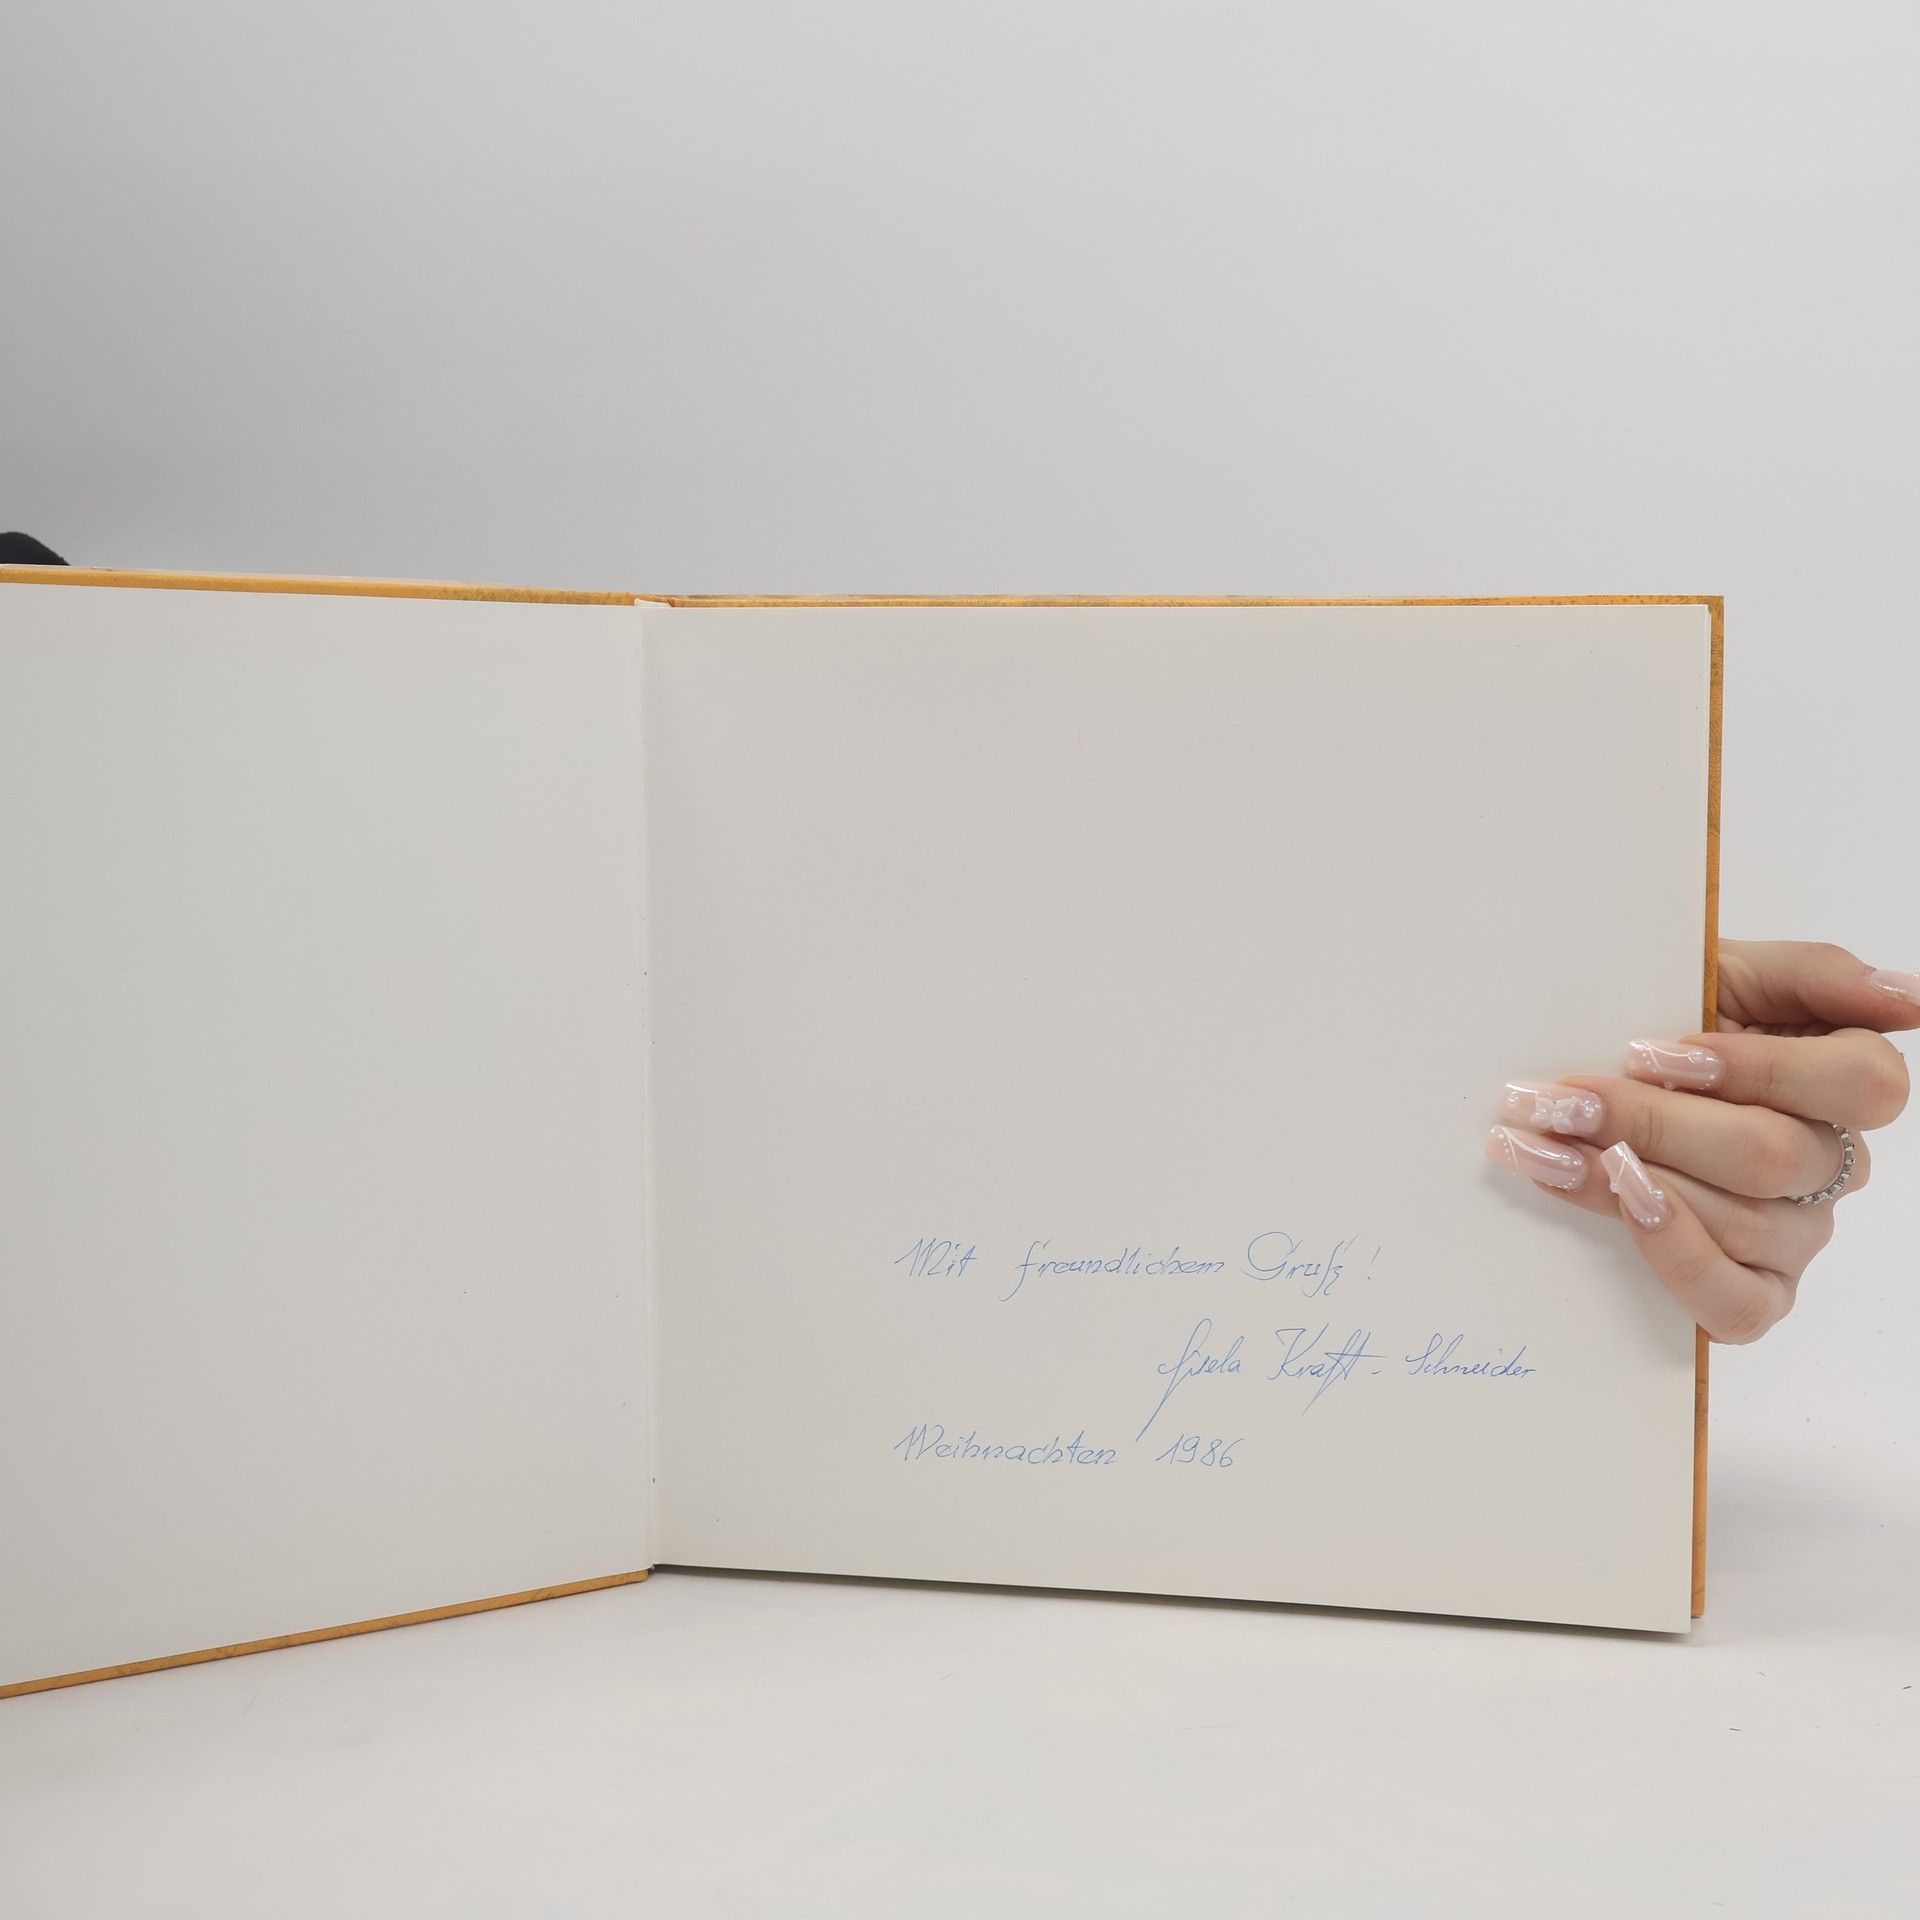 Mit freundlichem Gruß!
Gisela Kraft - Schneider
Weihnachten 1986